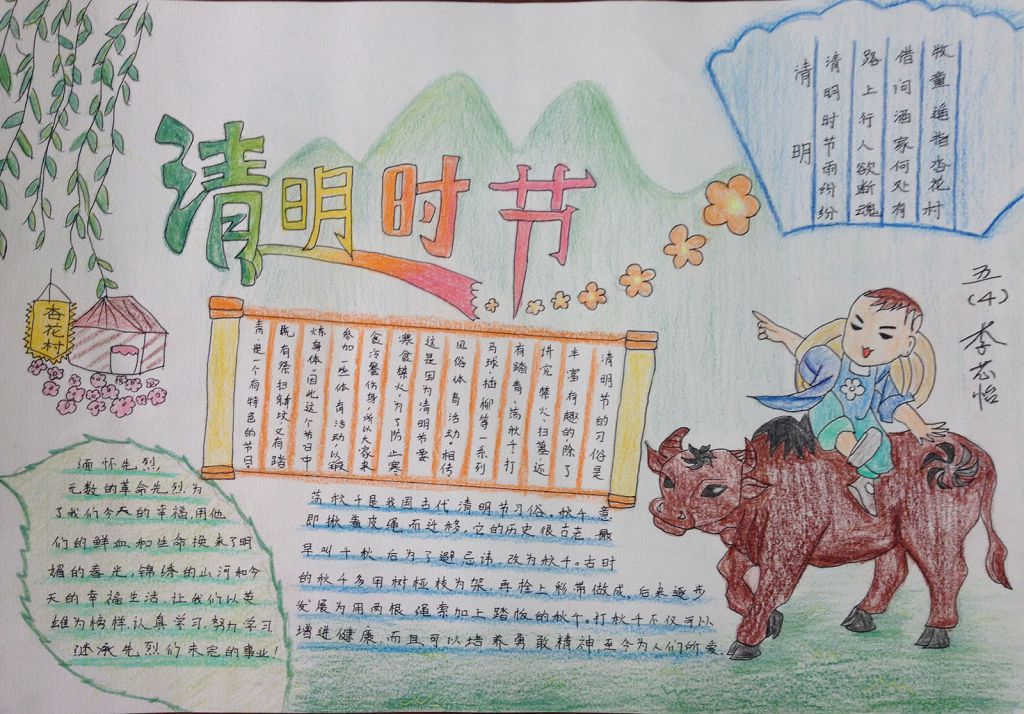 清明时节
清明
清明时节雨纷纷
路上行人欲断魂
借问酒家何处有
牧童遥指杏花村
五(4)
李 怡
杏花村
清明节的习俗是
丰富有趣的，除了
讲究禁火、扫墓，还
有踏青、荡秋千、打
马球、插柳等一系列
风俗体育活动。相传
这是因为清明节要
寒食禁火，为了防止寒
食冷餐伤身，所以大家来
参加一些体育活动，以锻
炼身体。因此这个节日中
既有祭扫新坟，又有踏
青，是一个有特色的节日。
缅怀先烈，
无数的革命先烈为
了我们今天的幸福，用他
们的鲜血和生命换来了明
媚的春光，锦绣的山河和今
天的幸福生活，让我们以英
雄为榜样，认真学习，努力学习
继承先烈们未完的事业！
荡秋千是我国古代清明节习俗。秋千，意
即揪着皮绳而迁移。它的历史很古老，最
早叫千秋，后为了避忌讳，改为秋千。古时
的秋千多用树桠枝为架，再栓上彩带做成，后来逐步
发展为用两根绳索加上踏板的秋千。打秋千不仅可以
增进健康，而且可以培养勇敢精神，至今为人们所爱。